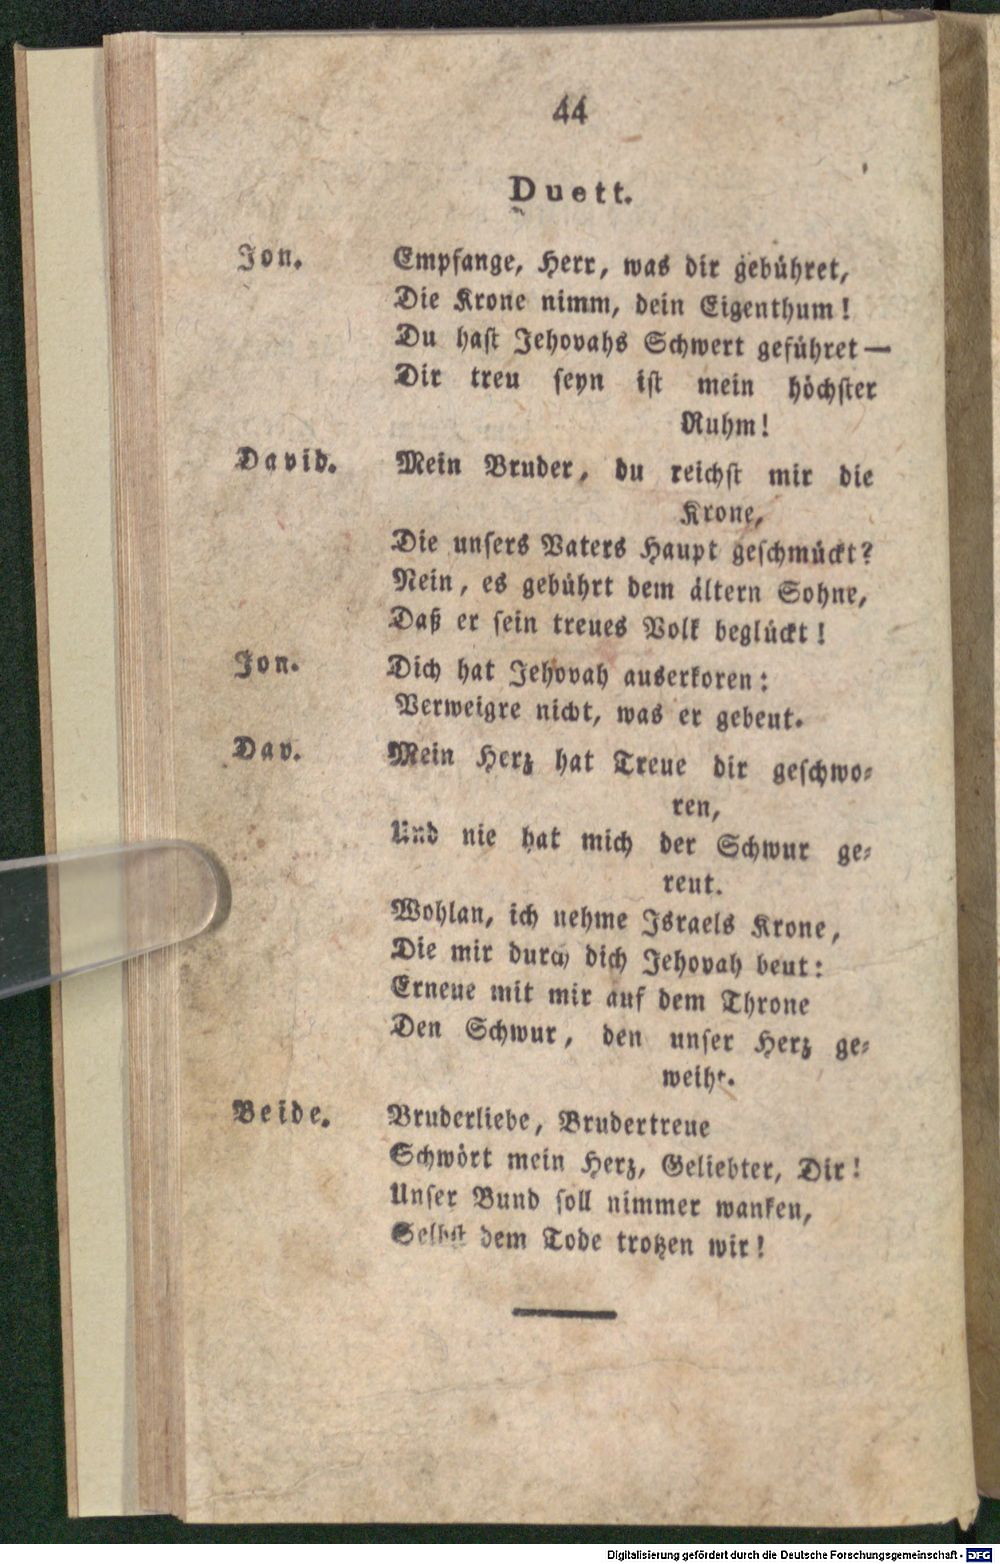 44
Duett.
Jon. Empfange, Herr, was dir gebühret,
Die Krone nimm, dein Eigenthum!
Du hast Jehovahs Schwert geführet—
Dir treu seyn ist mein höchster
Ruhm!
David. Mein Bruder, du reichst mir die
Krone,
Die unsers Vaters Haupt geschmückt?
Nein, es gebührt dem ältern Sohne,
Daß er sein treues Volk beglückt!
Jon. Dich hat Jehovah auserkoren:
Verweigre nicht, was er gebeut.
Dav. Mein Herz hat Treue dir geschwo-
ren,
Und nie hat mich der Schwur ge-
reut.
Wohlan, ich nehme Israels Krone,
Die mir durch dich Jehovah beut:
Erneue mit mir auf dem Throne
Den Schwur, den unser Herz ge-
weiht.
Beide. Bruderliebe, Brudertreue
Schwört mein Herz, Geliebter, Dir!
Unser Bund soll nimmer wanken,
Selbst dem Tode trotzen wir!
Digitalisierung gefördert durch die Deutsche Forschungsgemeinschaft - DFG